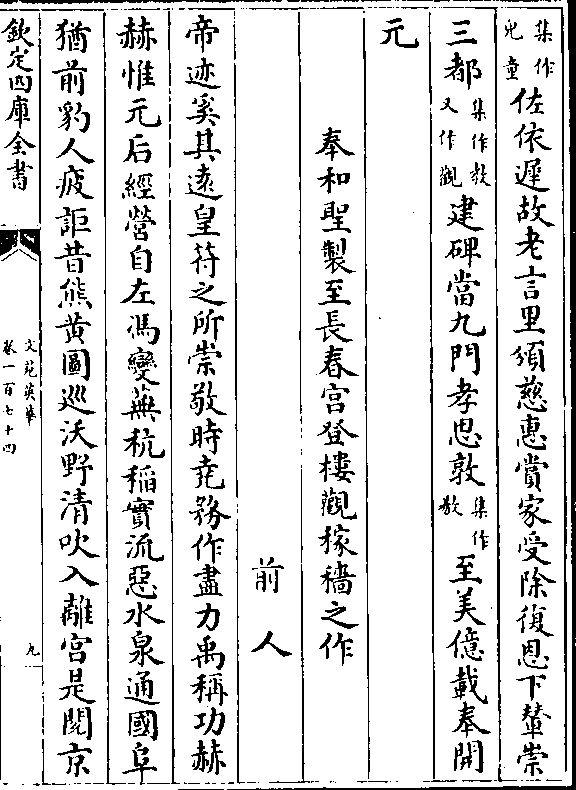 集作
兒童
佐依遲故老言里頌慈惠賞家受除復恩下輦崇
三都
集作教
又作觀
建碑當九門孝思敦
集作
教
至美億載奉開
元
奉和聖製至長春宮登樓觀稼穡之作
前人
帝迹奚其遠皇符之所崇敬時堯務作盡力禹稱功赫
赫惟元后經營自左馮變蕪秔稻實流惡水泉通國阜
猶前豹人疲詎昔熊黄圖巡沃野清吹入離宮是閱京
欽定四庫全書
文苑英華
卷一百七十四
九